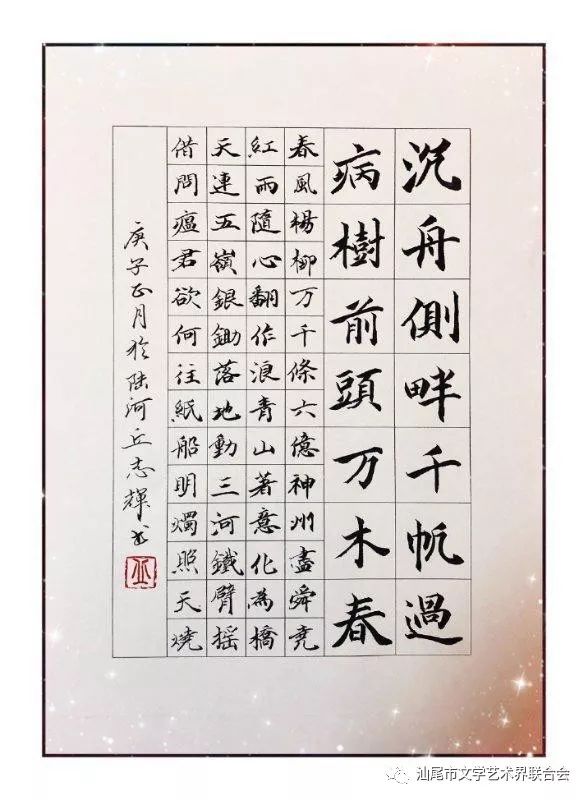 沉舟側畔千帆過
病樹前頭万木春
春風楊柳万千條六億神州盡舜尭
紅雨隨心翻作浪青山著意化為橋
天連五嶺銀鋤落地動三河鐵臂摇
借問瘟君欲何往紙船明燭照天燒
庚子正月於陆河丘志輝书
丘
汕尾市文学艺术界联合会